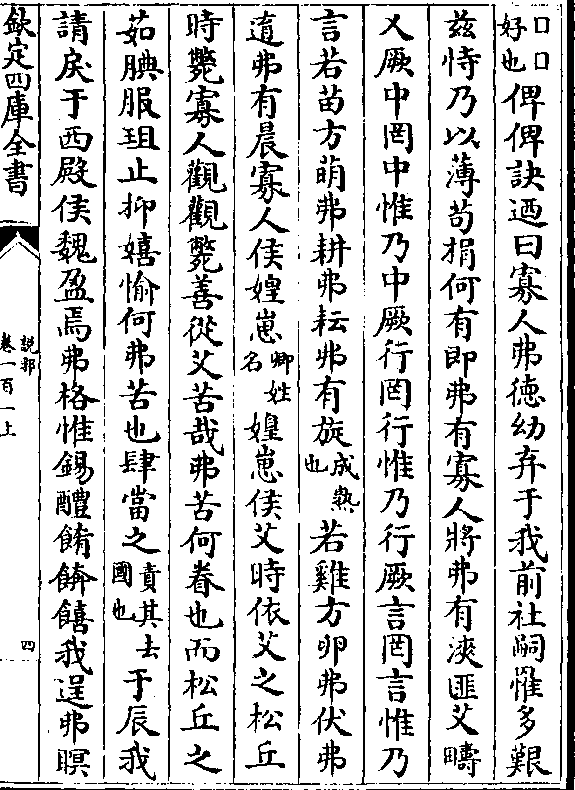 □□好也俾俾訣迺曰寡人弗德幼弃于我前社嗣惟多艱
兹恃乃以薄苟捐何有即弗有寡人將弗有浹匪艾疇
乂厥中罔中惟乃中厥行罔行惟乃行厥言罔言惟乃
言若苗方萌弗耕弗耘弗有旋成熟也若雞方卵弗伏弗
逳弗有晨寡人侯媓崽卿姓名媓崽侯艾時依艾之松丘
時斃寡人觀觀斃善從艾苦哉弗苦何眷也而松丘之
茹腆服珇止抑嬉愉何弗苦也肆當之責其去國也于辰我
請戾于西殿侯魏盈焉弗格惟錫醴餚餴饎我逞弗瞑
欽定四庫全書
説郛
卷一百一上
四